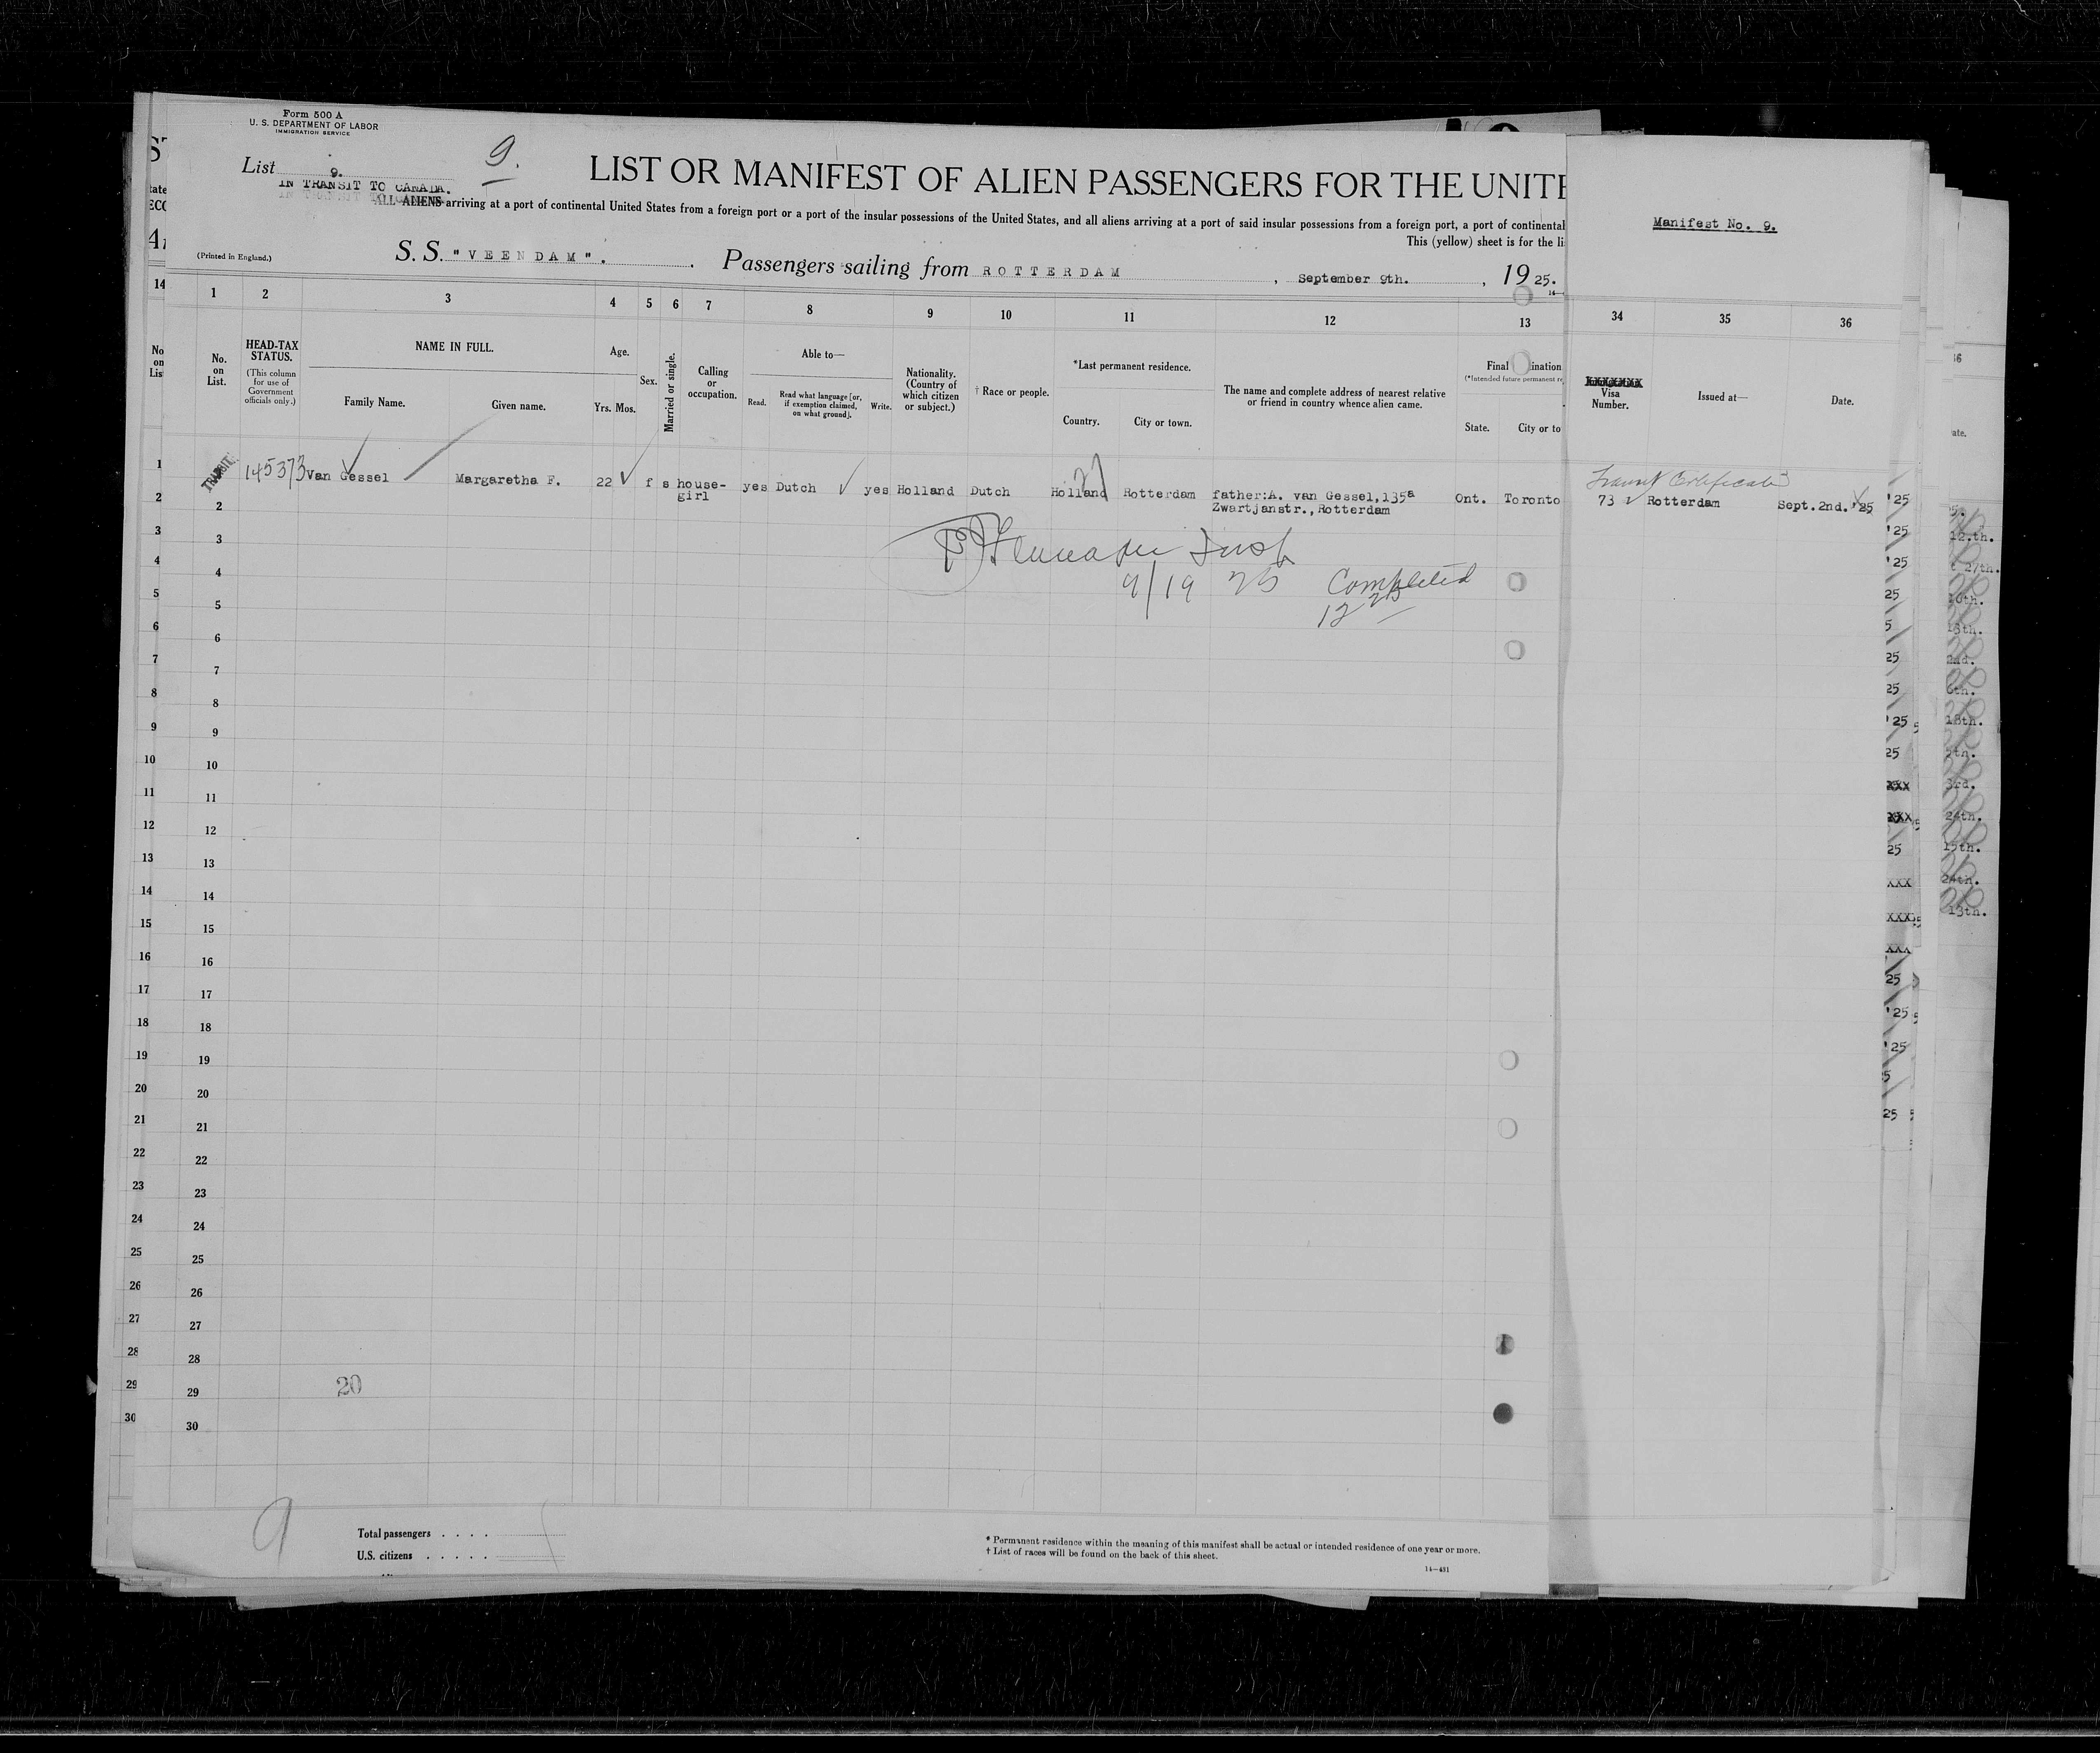 Form 500 A
U. S. DEPARTMENT OF LABOR
IMMIGRATION SERVICE
List 9.
9.
IN TRANSIT TO CANADA.
LIST OR MANIFEST OF ALIEN PASSENGERS FOR THE UNITE
ALL ALIENS arriving at a port of continental United States from a foreign port or a port of the insular possessions of the United States, and all aliens arriving at a port of said insular possessions from a foreign port, a port of continental
This (yellow) sheet is for the li
Manifest No. 9.
(Printed in England.)
S. S. "VEENDAM". Passengers sailing from ROTTERDAM, September 9th., 1925.
1 2 3 4 5 6 7 8 9 10 11 12 13 34 35 36
No. on List.
HEAD-TAX STATUS.
(This column for use of Government officials only.)
NAME IN FULL.
Family Name. Given name.
Age.
Yrs. Mos.
Sex.
Married or single.
Calling or occupation.
Able to—
Read. Read what language [or, if exemption claimed, on what ground]. Write.
Nationality. (Country of which citizen or subject.)
† Race or people.
*Last permanent residence.
Country. City or town.
The name and complete address of nearest relative or friend in country whence alien came.
Final ination
(*Intended future permanent re
State. City or to
XXXXXXX
Visa Number.
Issued at—
Date.
Transit Certificate
TRANSIT 145373 Van Gessel Margaretha F. 22 f s house-girl yes Dutch yes Holland Dutch Holland Rotterdam father:A. van Gessel,135a Zwartjanstr., Rotterdam Ont. Toronto 73 Rotterdam Sept.2nd.'25
9/19 25 Completed
2
3
4
5
6
7
8
9
10
11
12
13
14
15
16
17
18
19
20
21
22
23
24
25
26
27
28
29
30
20
9
Total passengers . . . .
U.S. citizens . . . . .
* Permanent residence within the meaning of this manifest shall be actual or intended residence of one year or more.
† List of races will be found on the back of this sheet.
14—431